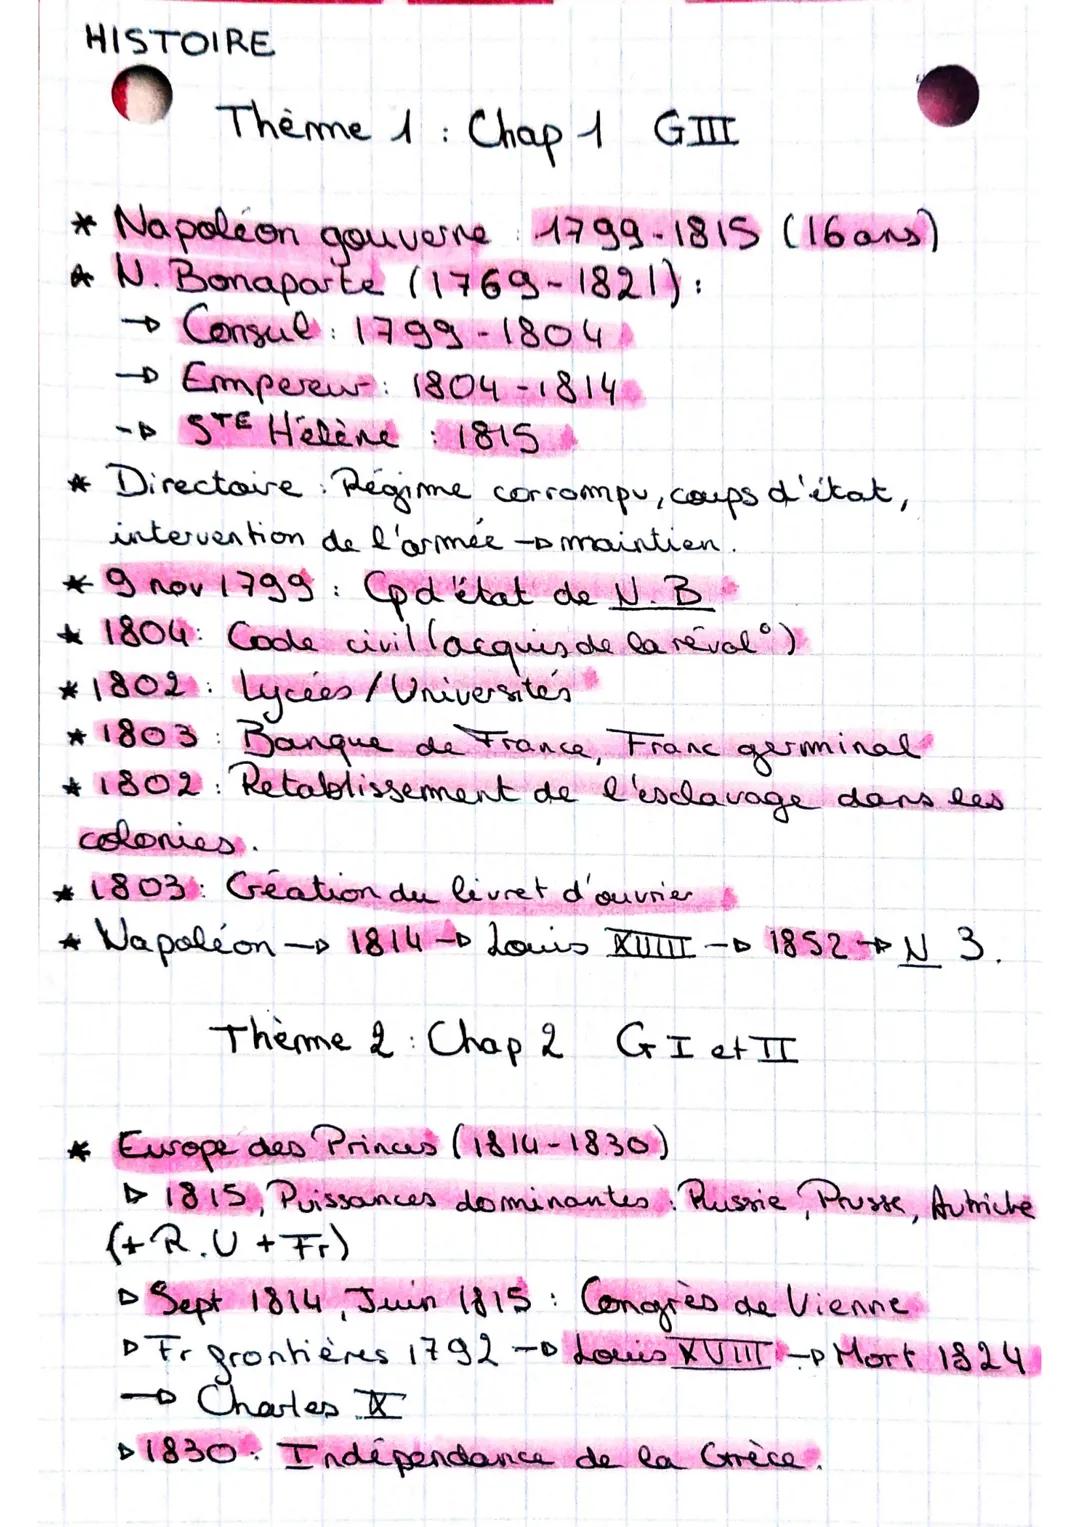 HISTOIRE
Thème 1 : Chap 1 GIII
* Napoléon gouverne : 1799-1815 (16 ans)
* N. Bonaparte (1769-1821) :
→ Consul : 1799-1804
→ Empereur : 1804-1814
→ STE Hélène : 1815
* Directoire : Régime corrompu, coups d'état,
intervention de l'armée → maintien.
* 9 nov 1799 : Cp d'état de N. B
* 1804 : Code civil (acquis de la révol°)
* 1802 : Lycées / Universités
* 1803 : Banque de France, Franc germinal
* 1802 : Rétablissement de l'esclavage dans les
colonies.
* 1803 : Création du livret d'ouvrier
* Napoléon → 1814 → Louis XVIII → 1852 → N 3.
Thème 2 : Chap 2 GI et II
* Europe des Princes (1814-1830)
▷ 1815, Puissances dominantes : Russie, Prusse, Autriche
(+ R.U + Fr)
▷ Sept 1814, Juin 1815 : Congrès de Vienne
▷ Fr frontières 1792 → Louis XVIII → Mort 1824
→ Charles X
▷ 1830 : Indépendance de la Grèce.